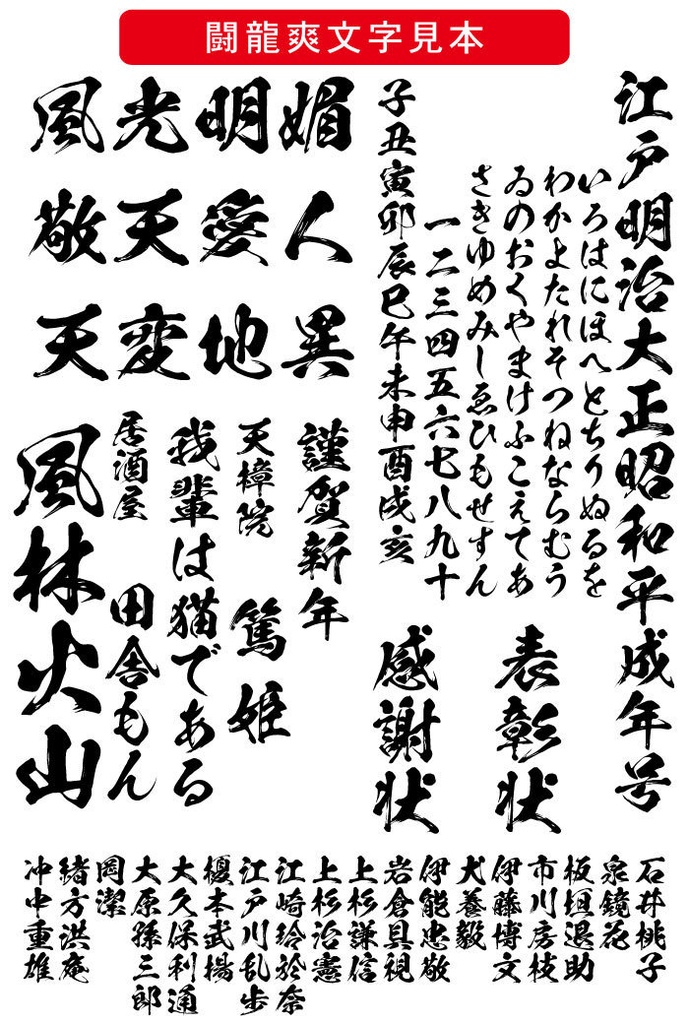 闘龍爽文字見本
江戸明治大正昭和平成年号
いろはにほへとちりぬるを
わかよたれそつねならむう
ゐのおくやまけふこえてあ
さきゆめみしゑひもせすん
一二三四五六七八九十
子丑寅卯辰巳午未申酉戌亥
表彰状
感謝状
風光明媚
敬天愛人
天変地異
謹賀新年
天樟院
篤姫
我輩は猫である
居酒屋
田舎もん
風林火山
石井桃子
泉鏡花
板垣退助
市川房枝
伊藤博文
犬養毅
伊能忠敬
岩倉具視
上杉謙信
上杉治憲
江崎玲於奈
江戸川乱歩
榎本武揚
大久保利通
大原孫三郎
岡潔
緒方洪庵
冲中重雄